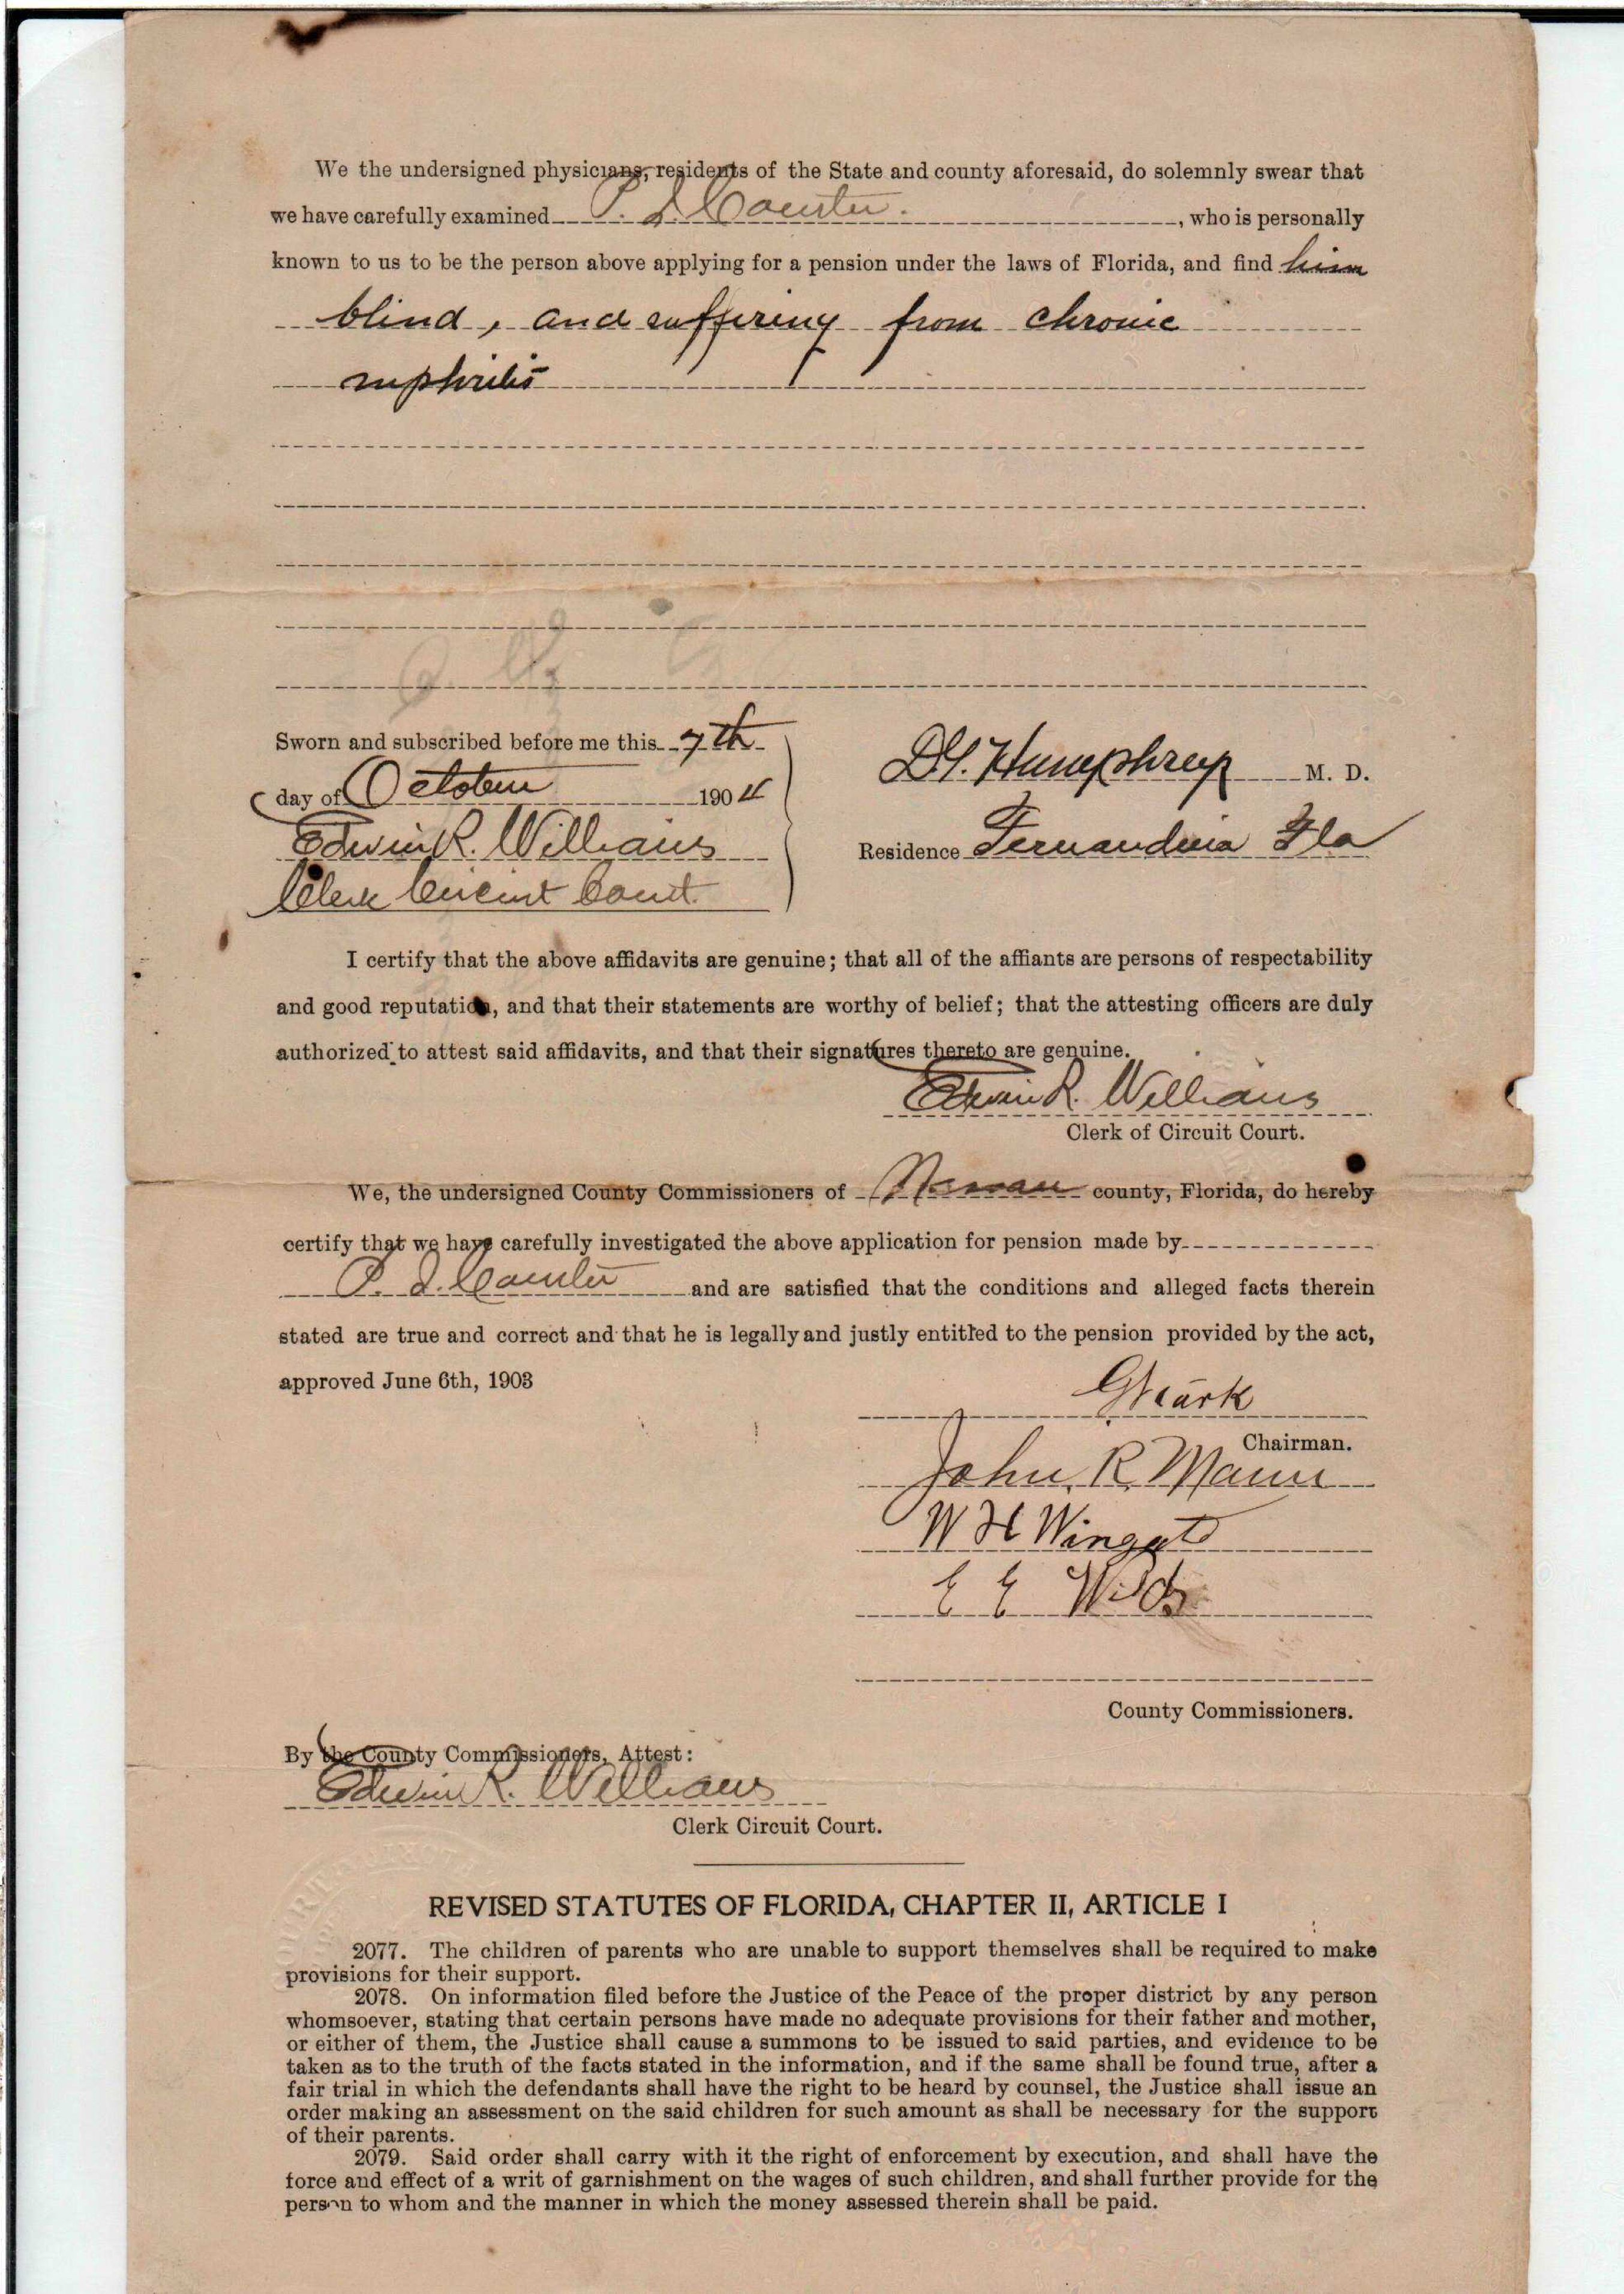 We the undersigned physicians, residents of the State and county aforesaid, do solemnly swear that
we have carefully examined P. , who is personally
known to us to be the person above applying for a pension under the laws of Florida, and find him
blind, and suffering from chronic
nphritis
Sworn and subscribed before me this 7th
day of October 1904
Edwin R. Williams
Clerk Circuit Court.
Humphreys M. D.
Residence Fernandina Fla
I certify that the above affidavits are genuine; that all of the affiants are persons of respectability
and good reputation, and that their statements are worthy of belief; that the attesting officers are duly
authorized to attest said affidavits, and that their signatures thereto are genuine.
Edwin R. Williams
Clerk of Circuit Court.
We, the undersigned County Commissioners of Nassau county, Florida, do hereby
certify that we have carefully investigated the above application for pension made by
P. and are satisfied that the conditions and alleged facts therein
stated are true and correct and that he is legally and justly entitled to the pension provided by the act,
approved June 6th, 1903
Chairman.
John R. Mann
W H Wingate
E E
County Commissioners.
By the County Commissioners, Attest:
Edwin R. Williams
Clerk Circuit Court.
REVISED STATUTES OF FLORIDA, CHAPTER II, ARTICLE I
2077. The children of parents who are unable to support themselves shall be required to make
provisions for their support.
2078. On information filed before the Justice of the Peace of the proper district by any person
whomsoever, stating that certain persons have made no adequate provisions for their father and mother,
or either of them, the Justice shall cause a summons to be issued to said parties, and evidence to be
taken as to the truth of the facts stated in the information, and if the same shall be found true, after a
fair trial in which the defendants shall have the right to be heard by counsel, the Justice shall issue an
order making an assessment on the said children for such amount as shall be necessary for the support
of their parents.
2079. Said order shall carry with it the right of enforcement by execution, and shall have the
force and effect of a writ of garnishment on the wages of such children, and shall further provide for the
person to whom and the manner in which the money assessed therein shall be paid.